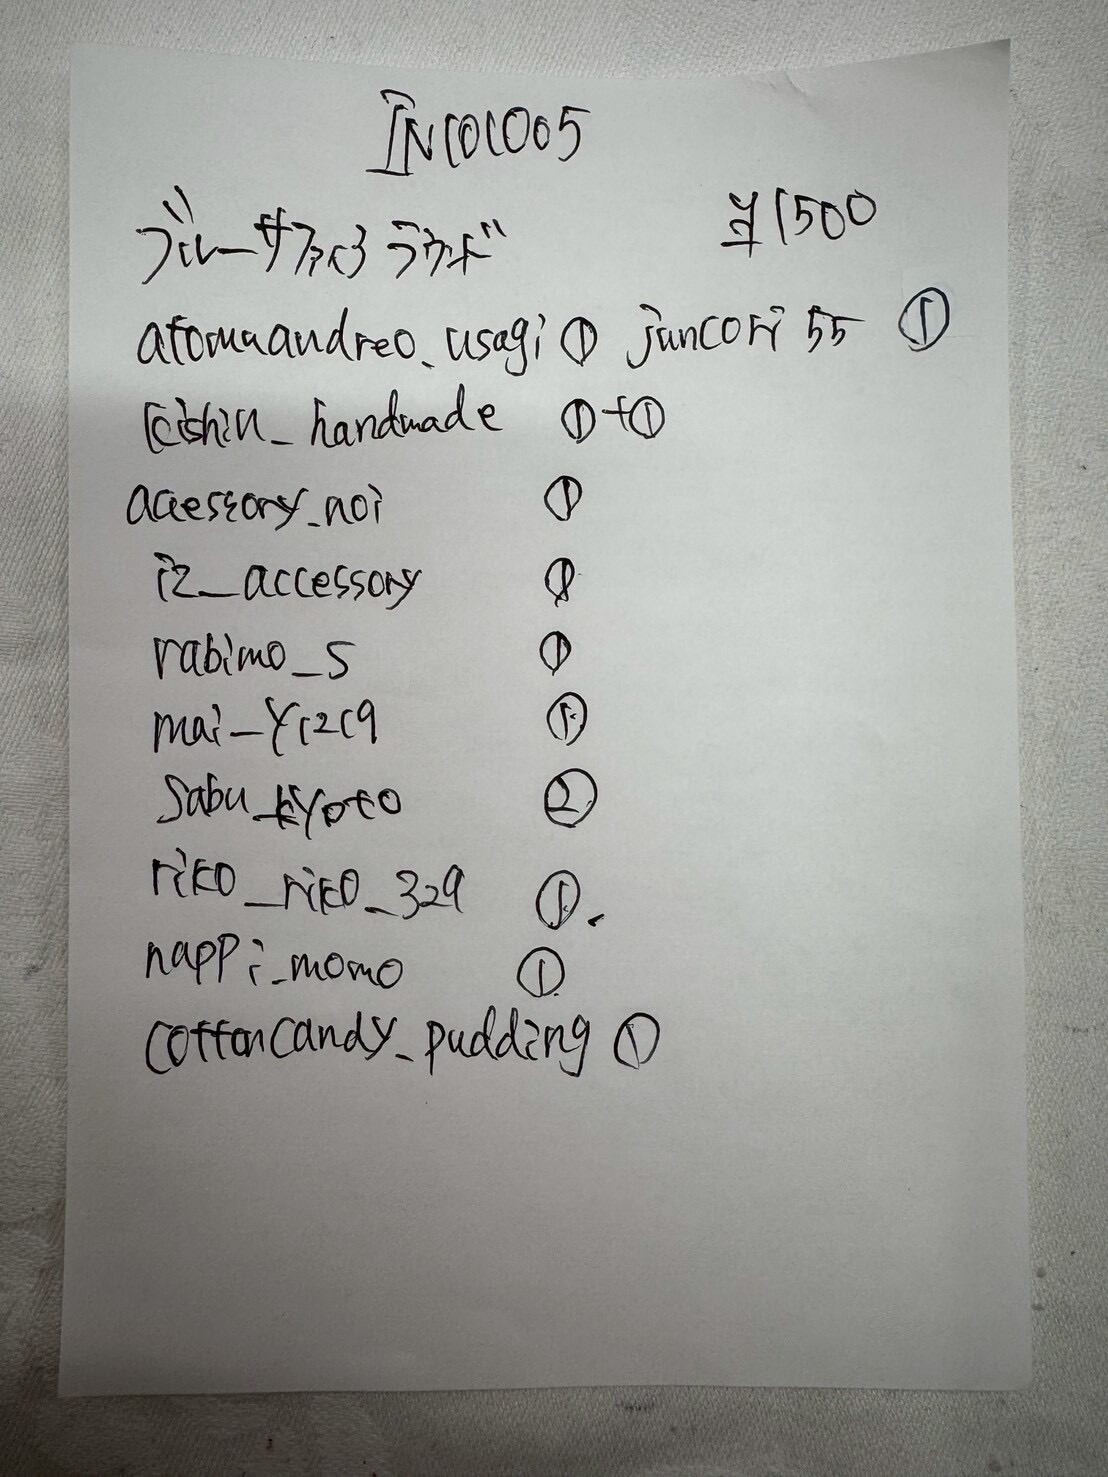 INC01005
ブルーサファイア ラウンド ¥1500
atomuandreo_usagi ① juncori55 ①
kishin_handmade ①+①
accessory_noi ①
iz_accessory ①
rabimo_s ①
mai_y1219 ①
sabu_kyoto ②
riko_riko_329 ①.
nappi_momo ①
cottoncandy_pudding ①